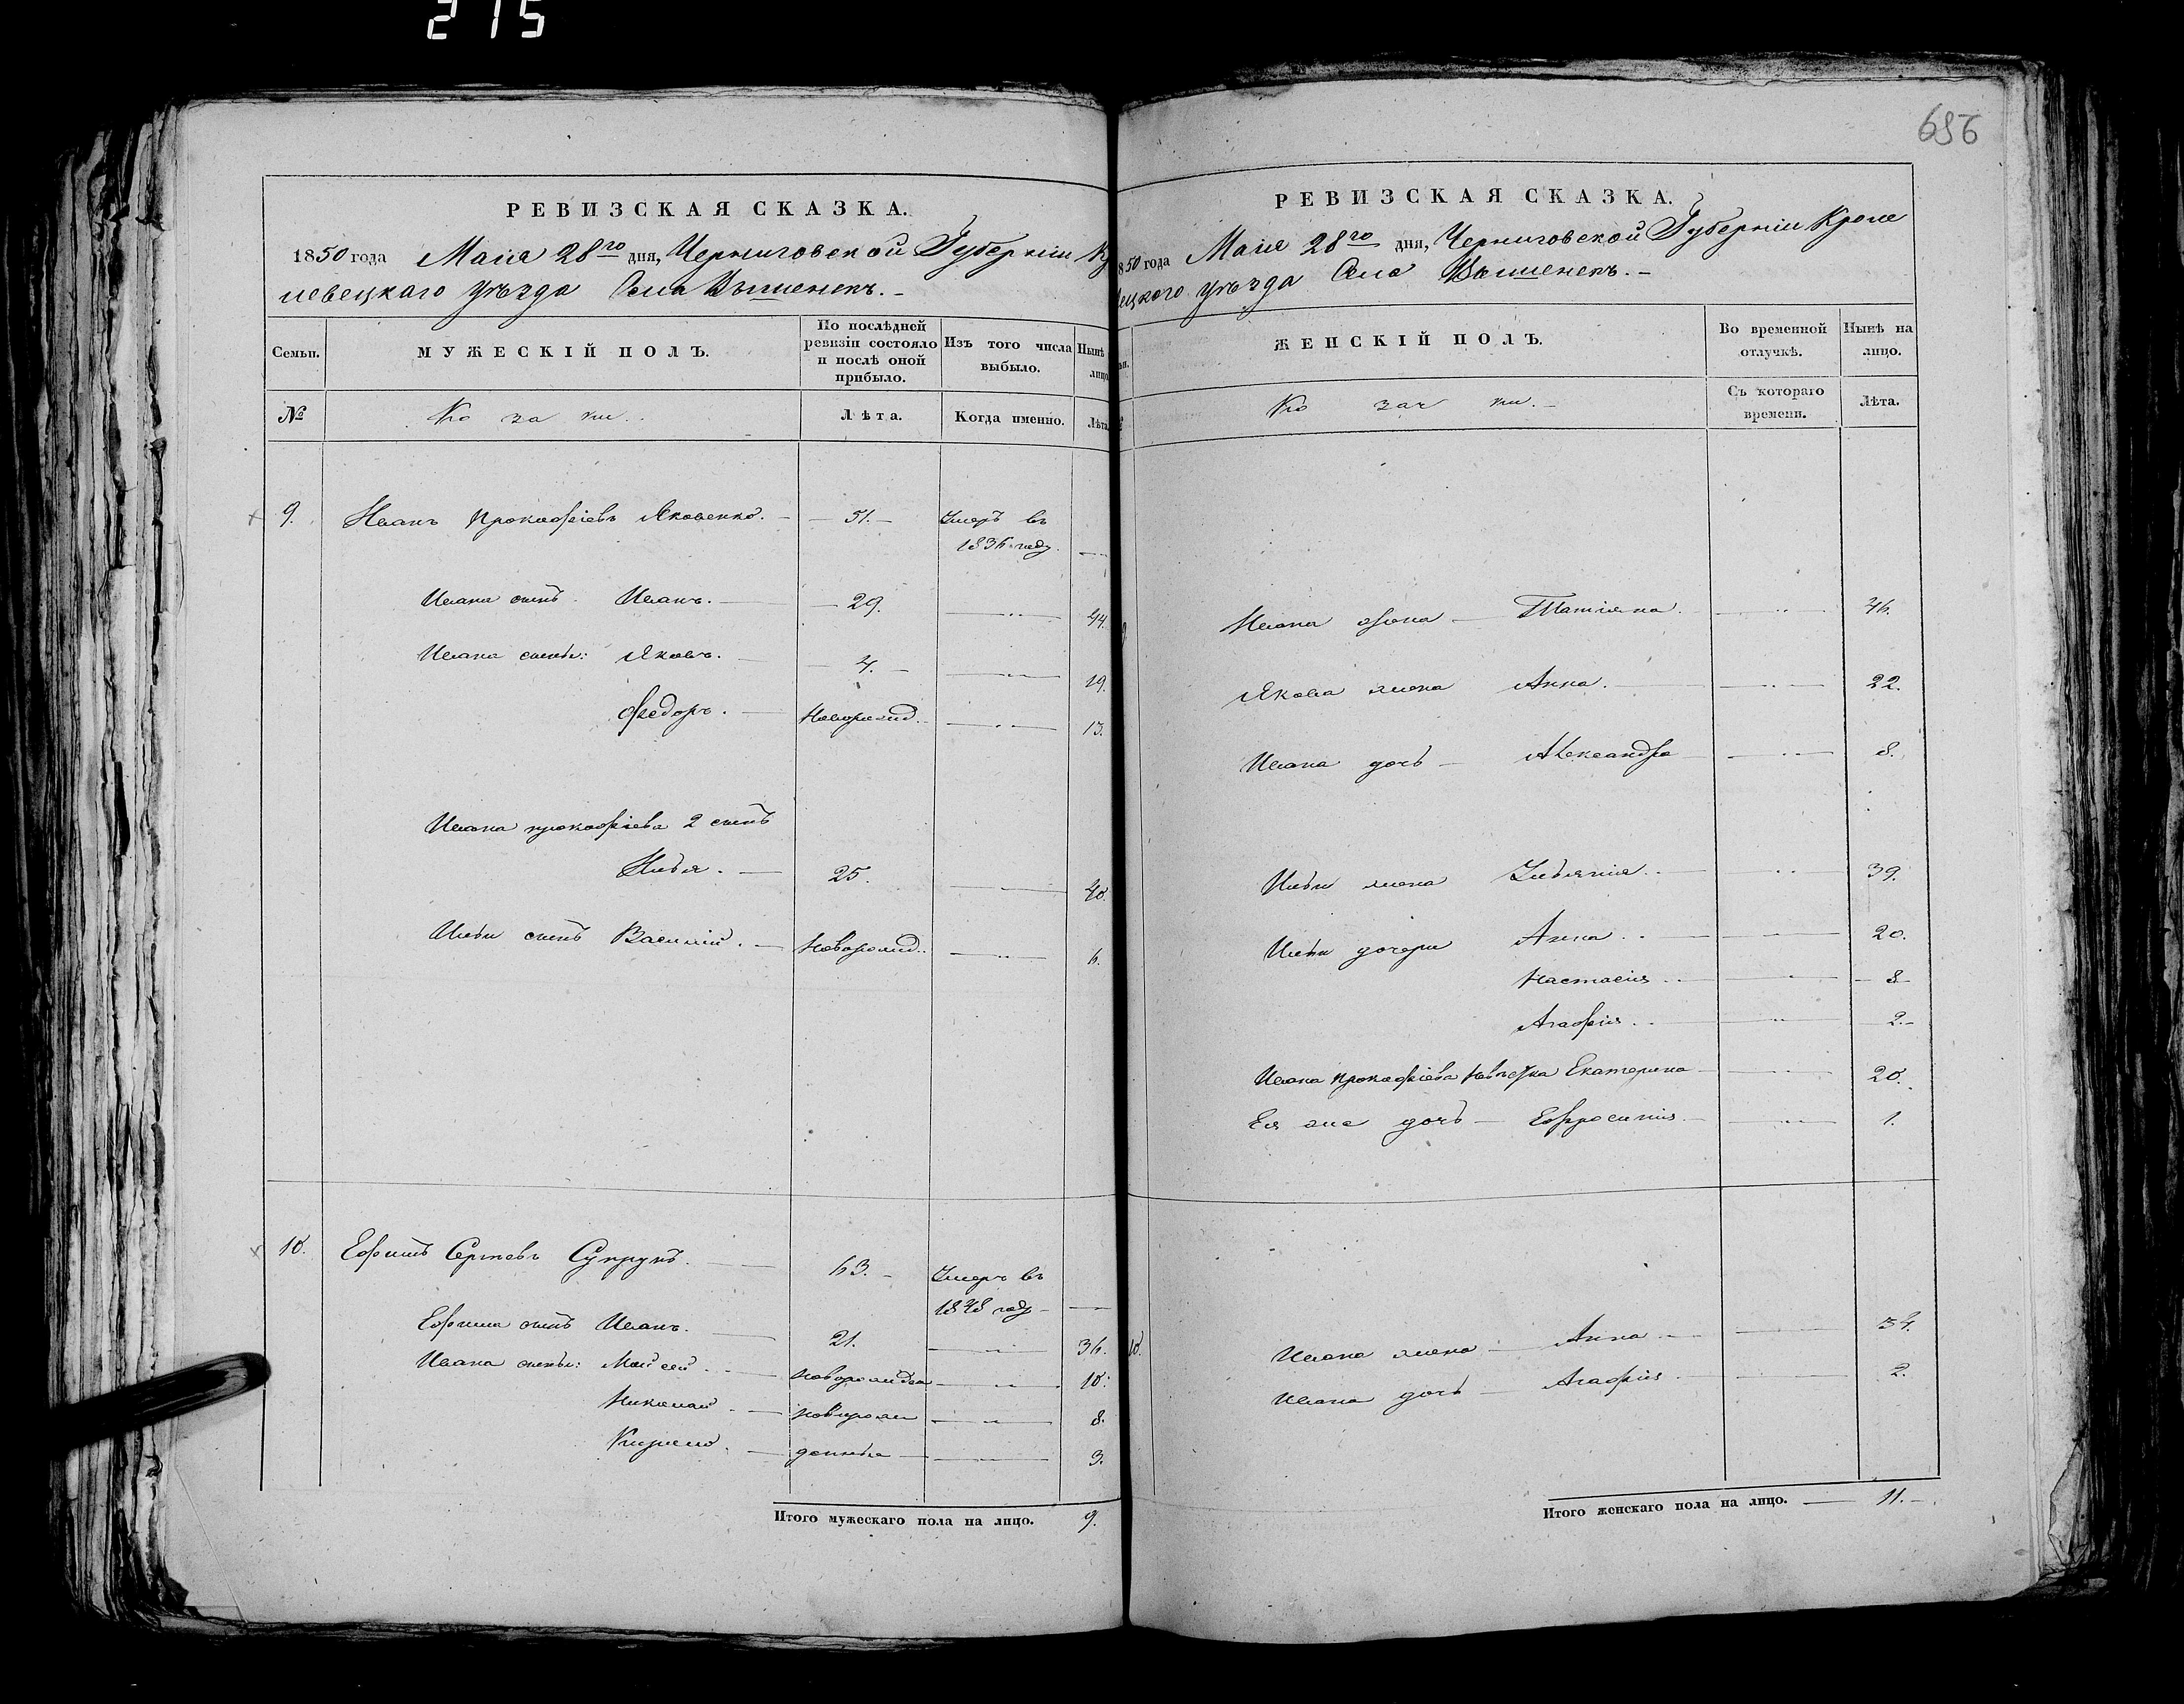 215
656
РЕВИЗСКАЯ СКАЗКА.
1850 года Маія 28го дня, Черниговской Губерніи К
левецкаго уѣзда Села Вышенекъ.
Семьи.
МУЖЕСКІЙ ПОЛЪ.
По послѣдней ревизіи состояло и послѣ оной прибыло.
Изъ того числа выбыло.
Нынѣ лицо
№
Козаки.
Лѣта.
Когда именно.
Лѣта.
9. Иванъ Прокофіевъ Яковенко. 51. Умеръ въ
1836 году.
Ивана сынъ Иванъ. 29. 44.
Ивана сыны: Яковъ. 4. 19.
Федоръ. Новорожд. 13.
Ивана Прокофіева 2 сынъ
Илья. 25. 40.
Ильи сынъ Василій. Новорожд. 6.
10. Ефимъ Сергѣевъ Супрунъ. 63. Умеръ въ
1848 году
Ефима сынъ Иванъ. 21. 36.
Ивана сыны: Моисей. Новорожден 10.
Николай новорож 8.
Кирило. денныя 3.
Итого мужескаго пола на лицо. 9.
РЕВИЗСКАЯ СКАЗКА.
850 года Маія 28го дня, Черниговской Губерніи Кроле
вецкого уѣзда Села Вышенекъ.
ЖЕНСКІЙ ПОЛЪ.
Во временной отлучкѣ.
Нынѣ на лицо.
Козачки.
Съ котораго времени.
Лѣта.
Ивана жена Татіяна. 46.
Якова жена Анна. 22.
Ивана дочь Александра 8.
Ильи жена Ульянія. 39.
Ильи дочери Анна. 20.
Настасія 8
Агафія. 2.
Ивана Прокофіева невѣстка Екатерина 20.
Ея же дочь Ефросинія 1.
10. Ивана жена Анна 34.
Ивана дочь Агафія 2.
Итого женскаго пола на лицо. 11.